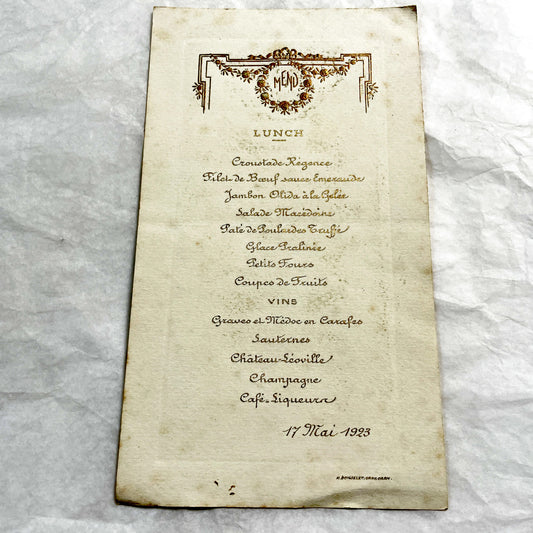 MENU
LUNCH
Croustade Régence
Filet de Bœuf sauce Emeraude
Jambon Olida à la Gelée
Salade Macédoine
Pâté de Poulardes Truffé
Glace Pralinée
Petits Fours
Coupes de Fruits
VINS
Graves et Médoc en Carafes
Sauternes
Château-Léoville
Champagne
Café-Liqueurs
17 Mai 1923